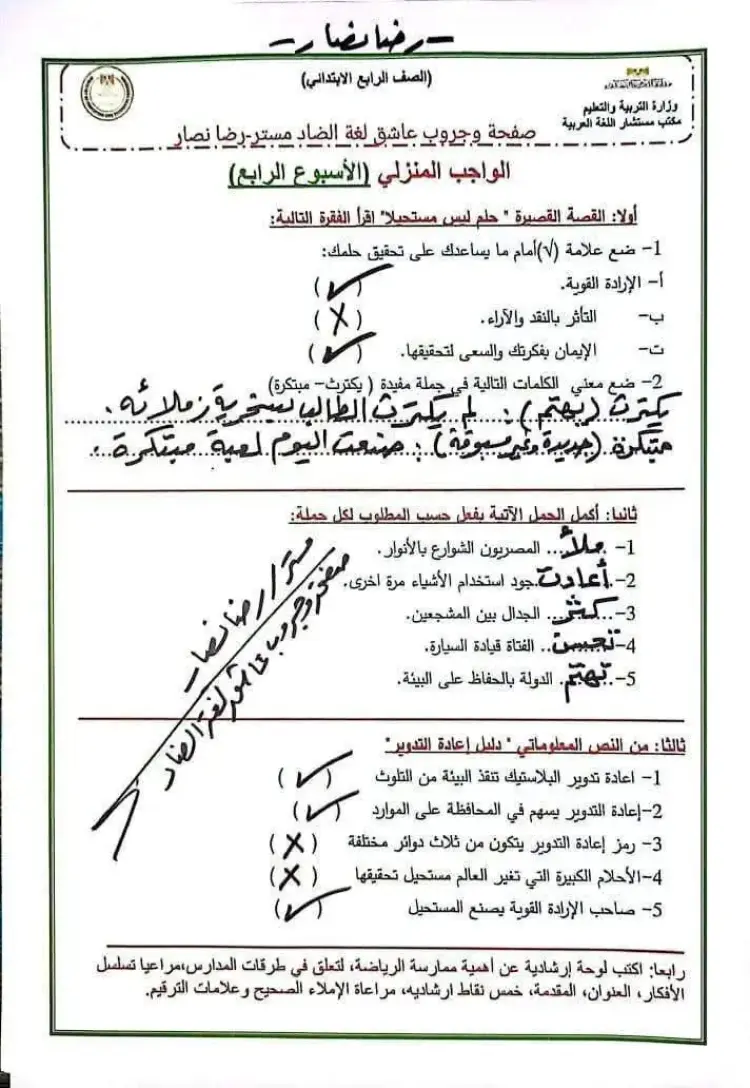 رضا نصار
(الصف الرابع الابتدائي)
وزارة التربية والتعليم
مكتب مستشار اللغة العربية
صفحة وجروب عاشق لغة الضاد مستر-رضا نصار
الواجب المنزلي (الأسبوع الرابع)
أولا: القصة القصيرة " حلم ليس مستحيلا" اقرأ الفقرة التالية:
1- ضع علامة (√)أمام ما يساعدك على تحقيق حلمك:
أ- الإرادة القوية. (✓)
ب- التأثر بالنقد والآراء. (X)
ت- الإيمان بفكرتك والسعى لتحقيقها. (✓)
2- ضع معني الكلمات التالية في جملة مفيدة ( يكترث- مبتكرة)
يكترث (يهتم): لم يكترث الطالب لسخرية زملائه.
مبتكرة (جديدة وغير مسبوقة): صنعت اليوم لعبة مبتكرة.
ثانيا: أكمل الجمل الآتية بفعل حسب المطلوب لكل جملة:
1- ملأ... المصريون الشوارع بالأنوار.
2- أعادت جود استخدام الأشياء مرة اخرى.
3- كثر... الجدال بين المشجعين.
4- تحسن.. الفتاة قيادة السيارة.
5- تهتم. الدولة بالحفاظ على البيئة.
مستر/ رضا نصار
صفحة وجروب عاشق لغة الضاد
ثالثا: من النص المعلوماتي " دليل إعادة التدوير "
1- اعادة تدوير البلاستيك تنقذ البيئة من التلوث (✓)
2-إعادة التدوير يسهم في المحافظة على الموارد (✓)
3- رمز إعادة التدوير يتكون من ثلاث دوائر مختلفة (X)
4-الأحلام الكبيرة التي تغير العالم مستحيل تحقيقها (X)
5- صاحب الإرادة القوية يصنع المستحيل (✓)
رابعا: اكتب لوحة إرشادية عن أهمية ممارسة الرياضة، لتعلق في طرقات المدارس،مراعيا تسلسل
الأفكار، العنوان، المقدمة، خمس نقاط ارشاديه، مراعاة الإملاء الصحيح وعلامات الترقيم.